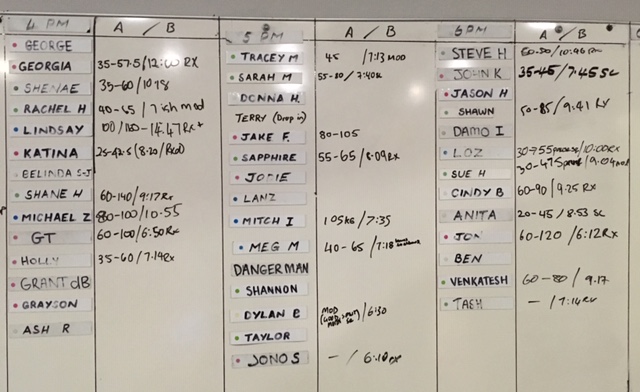 4 PM A / B
GEORGE
GEORGIA 35-57.5/12:00 RX
SHENAE 35-60/
RACHEL H 40-65 / mod
LINDSAY 14.47 Rx+
KATINA 25-42.5 (8:20/Rxd)
BELINDA S-J
SHANE H 60-140/9:17 Rx
MICHAEL Z 80-100/10:55
GT 60-100/6:50 Rx
HOLLY 35-60/7:19 Rx
GRANT dB
GRAYSON
ASH R
5 PM A / B
TRACEY M 45 /7:13 MOD
SARAH M 55-80/7:40
DONNA H.
TERRY (Drop in)
JAKE F. 80-105
SAPPHIRE 55-65/8:09 Rx
JODIE
LANZ
MITCH I 105KG/7:35
MEG M 40-65/7:18
DANGERMAN
SHANNON
DYLAN B MOD /6:30
TAYLOR
JONO S - / 6:10 RX
6 PM A / B
STEVE H
JOHN K 35-45/7:45 SC
JASON H
SHAWN 50-85/9:41 RX
DAMO I
LOZ /10:00 RX
30-47.5
SUE H
CINDY B 60-90/9:25 RX
ANITA 20-45/8:53 SC
JON 60-120/6:12 RX
BEN
VENKATESH 60-80/9.17
TASH - /7:14 RX